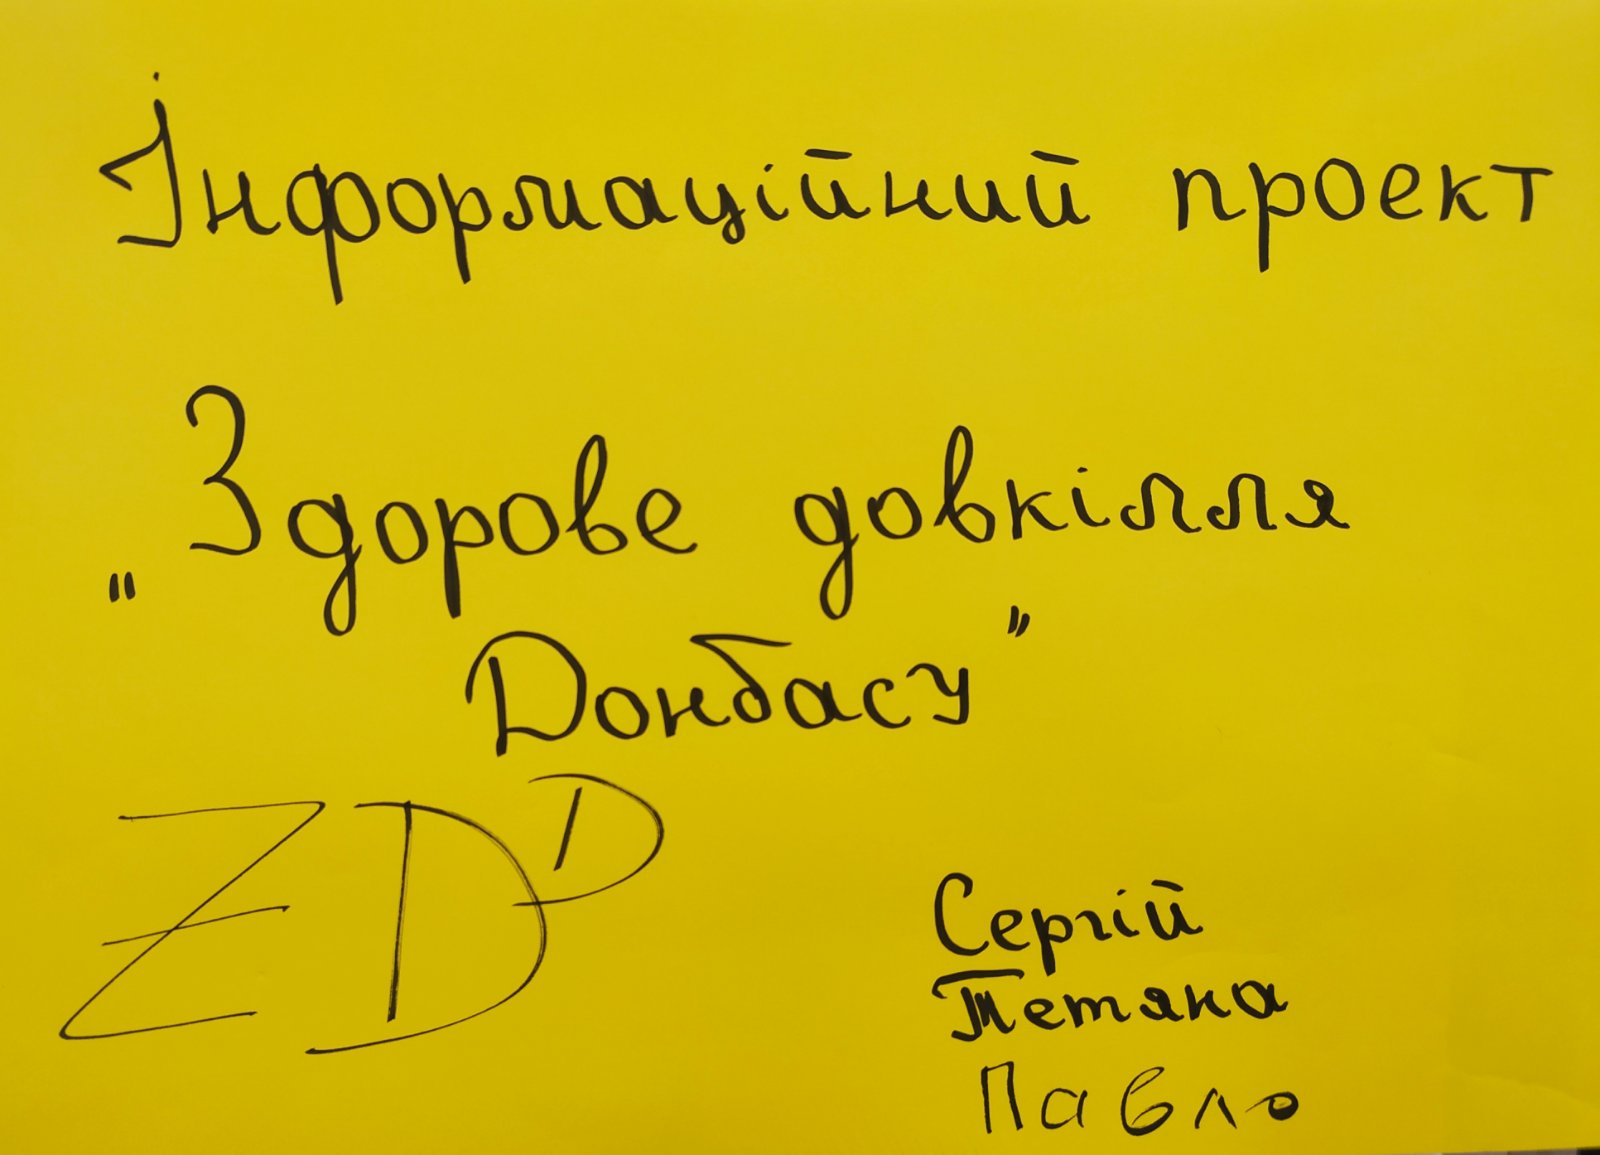 Інформаційний проект
„Здорове довкілля
Донбасу”
ZDD
Сергій
Тетяна
Павло